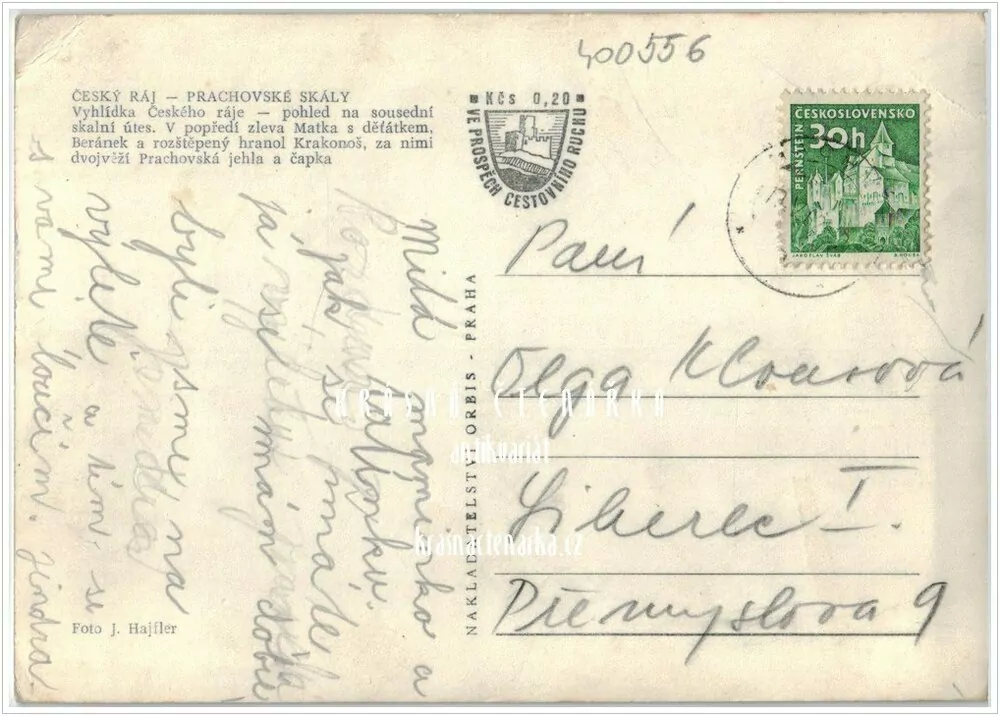 400556
ČESKÝ RÁJ — PRACHOVSKÉ SKÁLY
Vyhlídka Českého ráje — pohled na sousední
skalní útes. V popředí zleva Matka s děťátkem,
Beránek a rozštěpený hranol Krakonoš, za nimi
dvojvěží Prachovská jehla a čapka
KČS 0,20
VE PROSPĚCH CESTOVNÍHO RUCHU
ČESKOSLOVENSKO
30h
PERNŠTEJN
JAROSLAV ŠVÁB
Paní
Olga
Liberec I.
Přemyslova 9
NAKLADATELSTVÍ ORBIS - PRAHA
Milá a
jak se máte
já se mám dobře
byli jsme na
výletě a tím se
s vámi loučím. Jindra
Foto J. Hajfler
KRÁSNÁ ČTENÁŘKA
antikvariát
krasnactenarka.cz